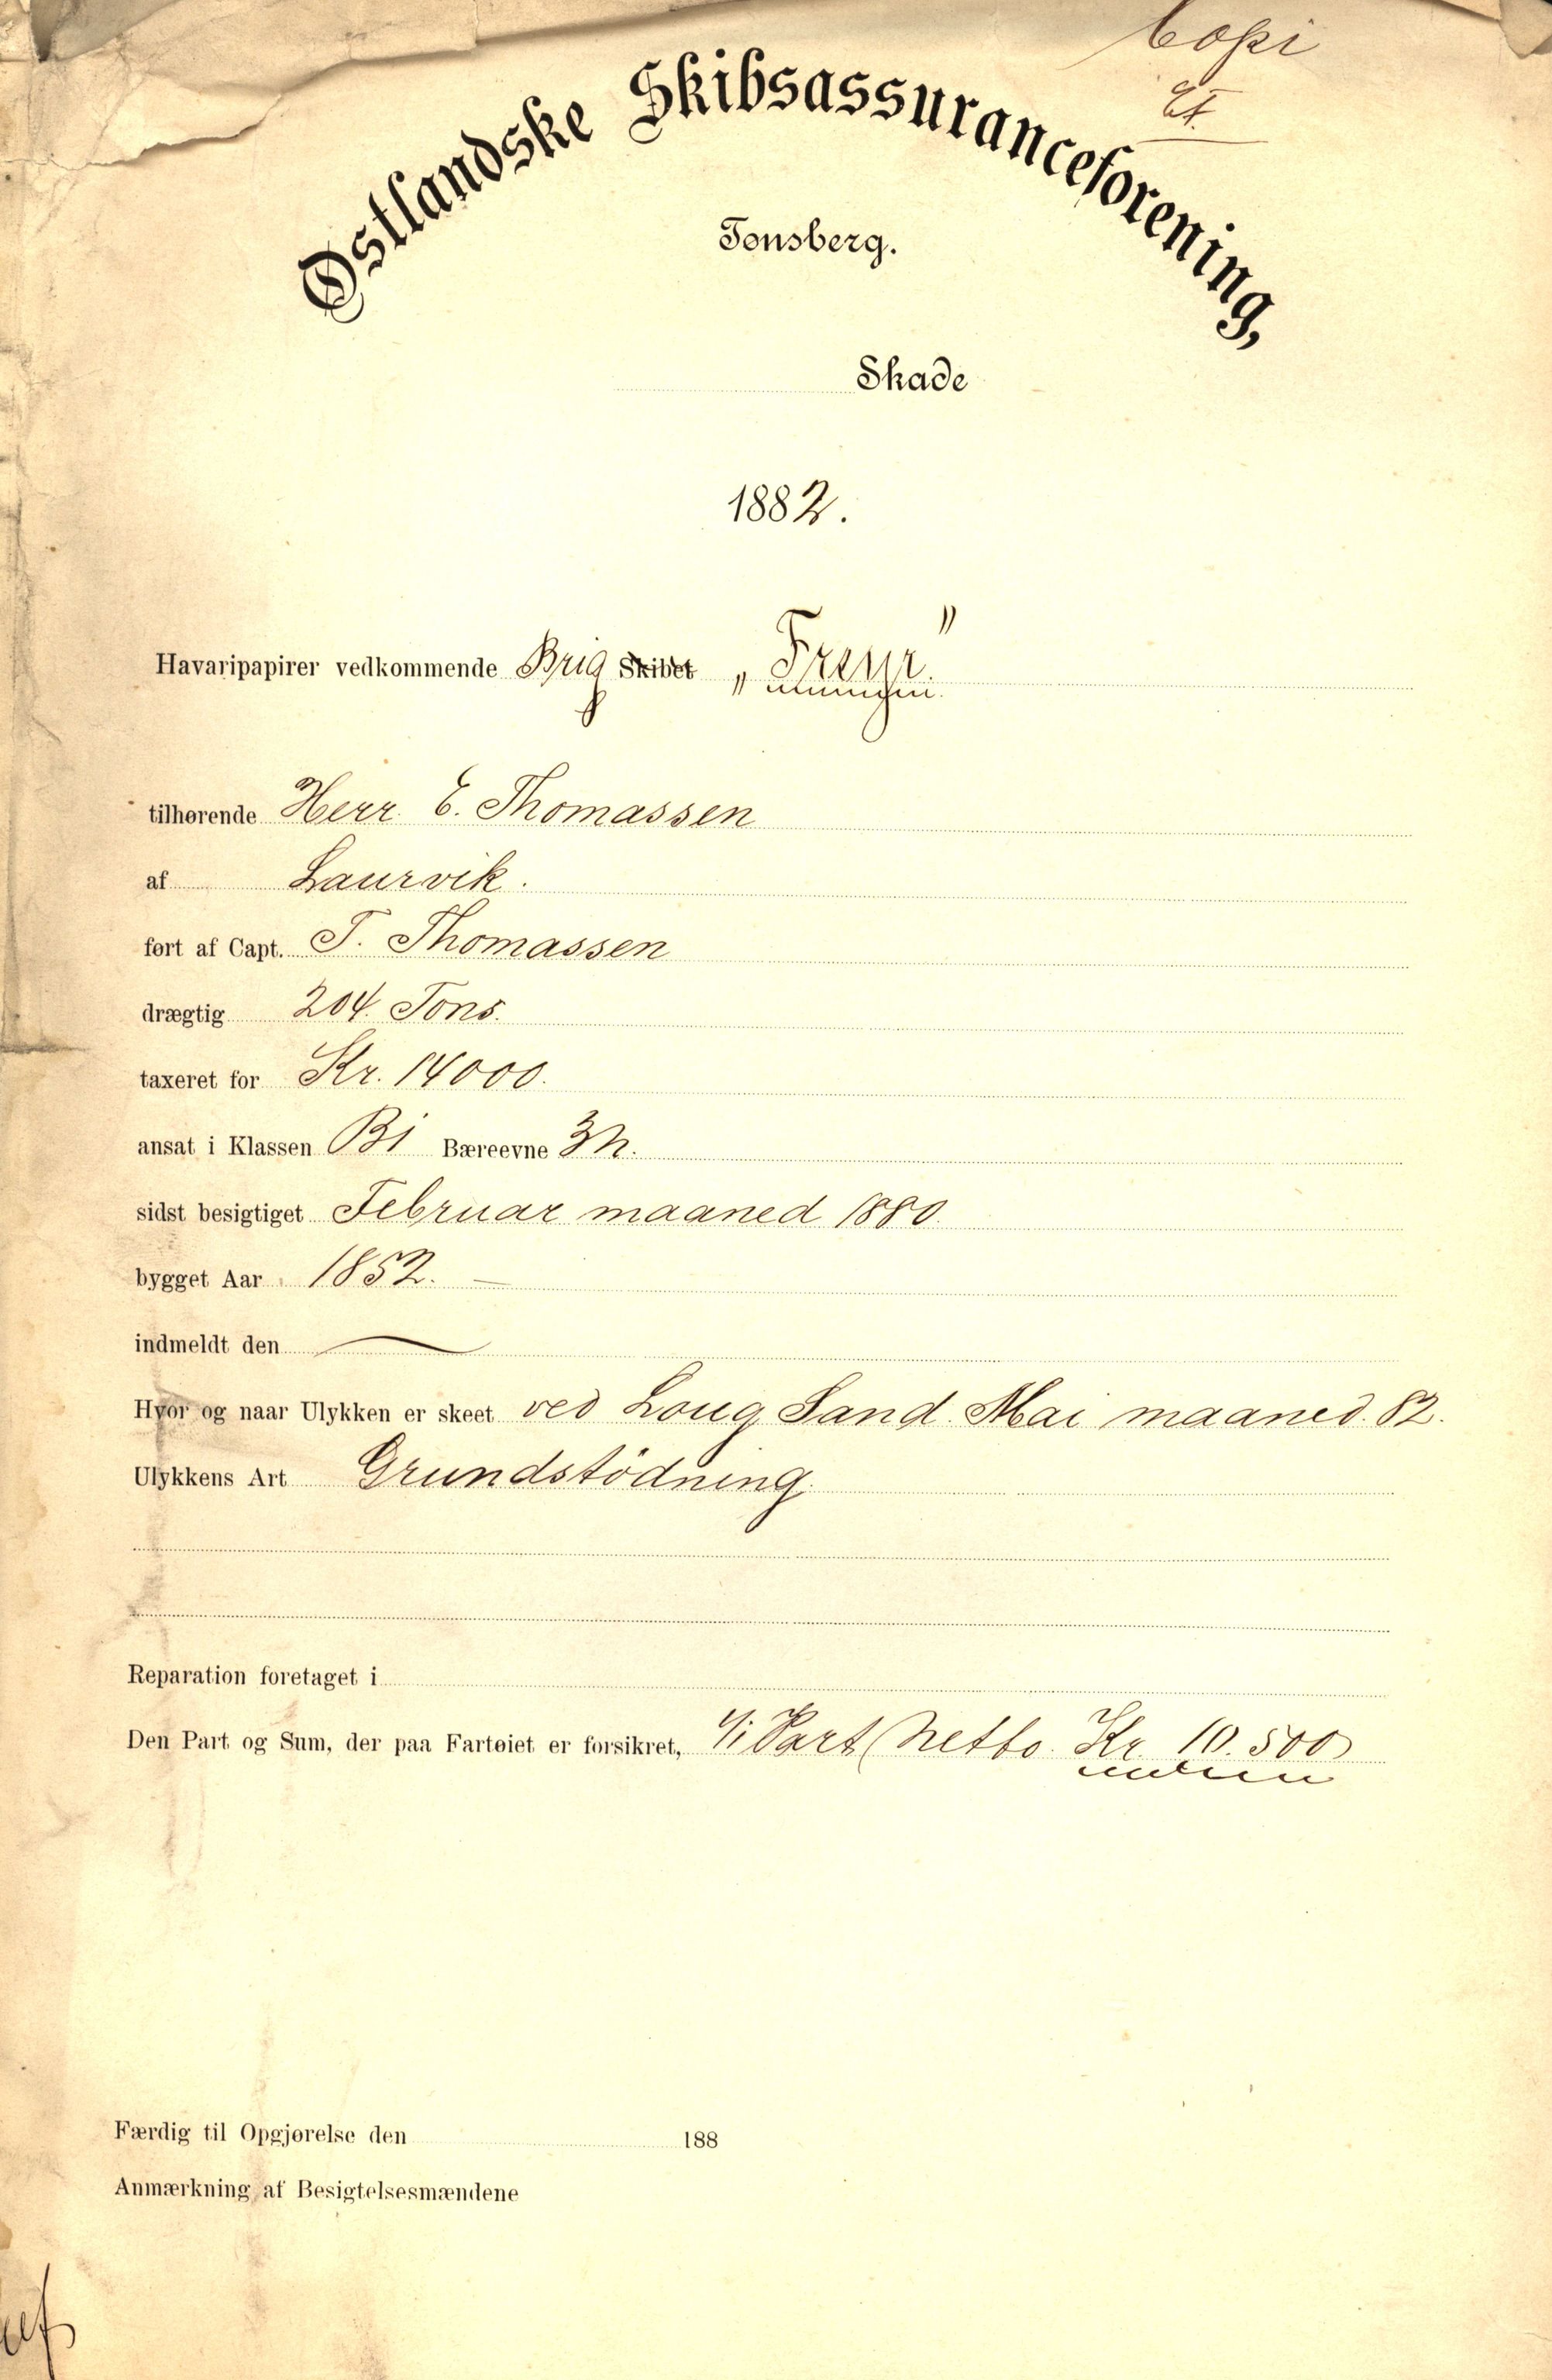 Copi
Østlandske Skibsassuranceforening,
Tønsberg.
Skade
1882.
Havaripapirer vedkommende Brig Skibet „Freyr."
tilhørende Herr E. Thomassen
af Laurvik.
ført af Capt. T. Thomassen
drægtig 204. Tons.
taxeret for Kr. 14000.
ansat i Klassen B1 Bæreevne 3
sidst besigtiget Februar maaned 1880.
bygget Aar 1852. —
indmeldt den —
Hvor og naar Ulykken er skeet ved Long Sand. Mai maaned. 82.
Ulykkens Art Grundstödning.
Reparation foretaget i
Den Part og Sum, der paa Fartøiet er forsikret, 1/1 Part (Netto. Kr. 10.500)
Færdig til Opgjørelse den 188
Anmærkning af Besigtelsesmændene